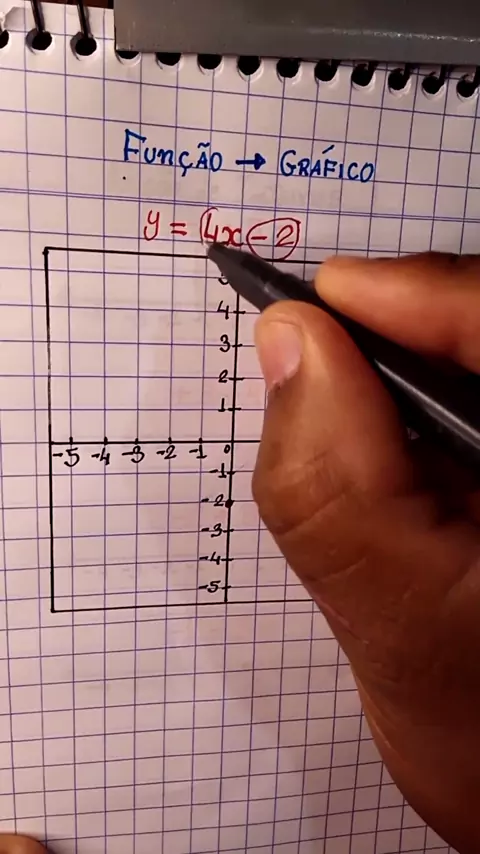 FUNÇÃO → GRÁFICO
y = 4x - 2
4
3
2
1
-5 -4 -3 -2 -1 0
-1
-2
-3
-4
-5